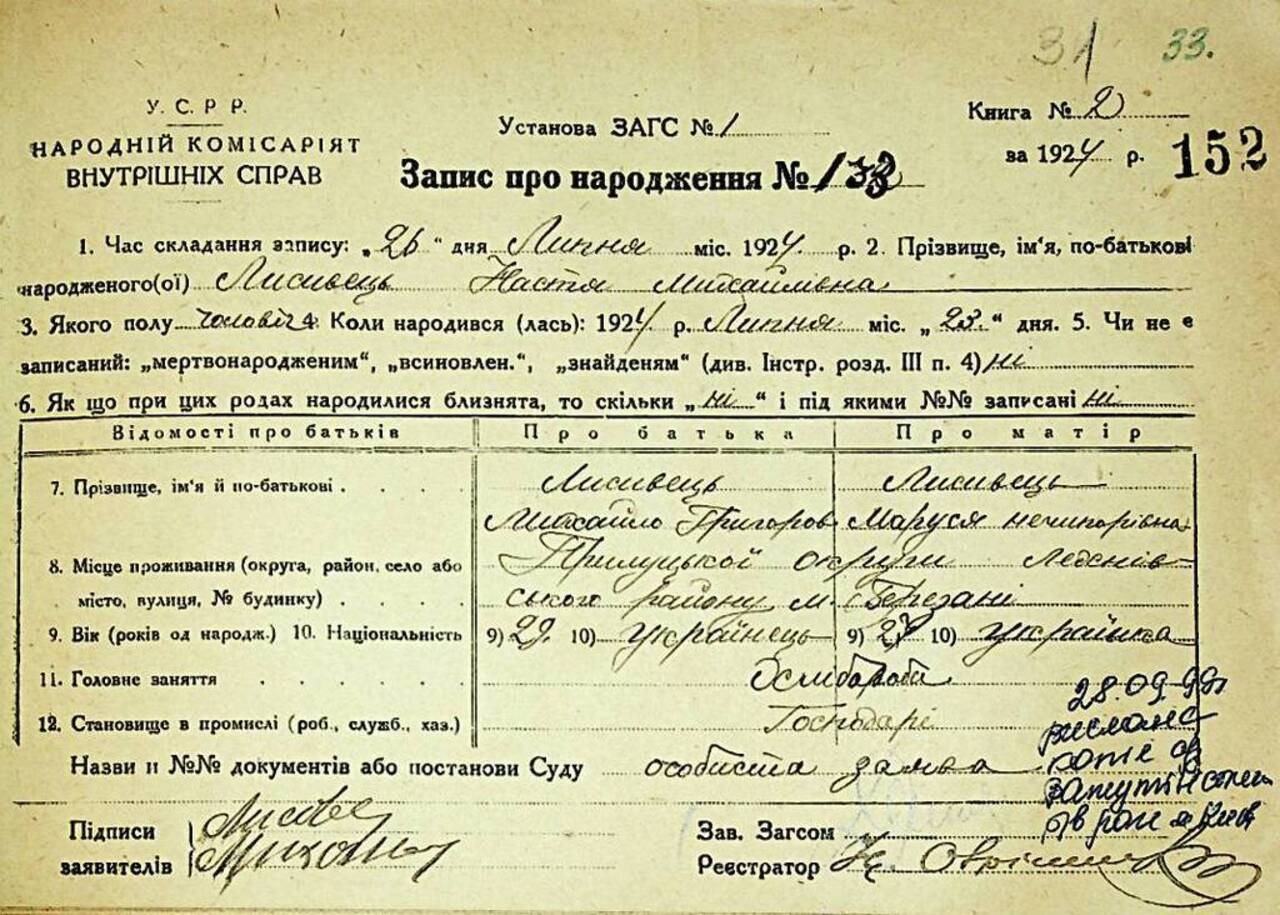 31 33.
У. С. Р Р.
НАРОДНІЙ КОМІСАРІЯТ
ВНУТРІШНІХ СПРАВ
Установа ЗАГС № 1
Запис про народження № 133
Книга № 2
за 1924 р. 152
1. Час складання запису: „26" дня Липня міс. 1924 р. 2. Прізвище, ім'я, по-батькові
народженого(ої) Лисивець Настя Михайлівна
3. Якого полу чоловіч 4. Коли народився (лась): 1924 р. Липня міс. „23." дня. 5. Чи не є
записаний: „мертвонародженим", „всиновлен.", „знайденям" (див. Інстр. розд. III п. 4) ні
6. Як що при цих родах народилися близнята, то скільки „ні" і під якими №№ записані ні
Відомості про батьків Про батька Про матір
7. Прізвище, ім'я й по-батькові . . . . Лисивець Лисивець
Михайло Григоров Маруся нечипорівна
8. Місце проживання (округа, район, село або Прилуцької округи
місто, вулиця, № будинку) . . . . ського району м. Березані
9. Вік (років од народж.) 10. Національність 9) 29. 10) українець 9) 27 10) українка
11. Головне заняття . . . . . Хлібороби
12. Становище в промислі (роб., служб., хаз.) Господарі
28.09.99р
Назви и №№ документів або постанови Суду особиста заява
Підписи
заявителів
Зав. Загсом
Реєстратор